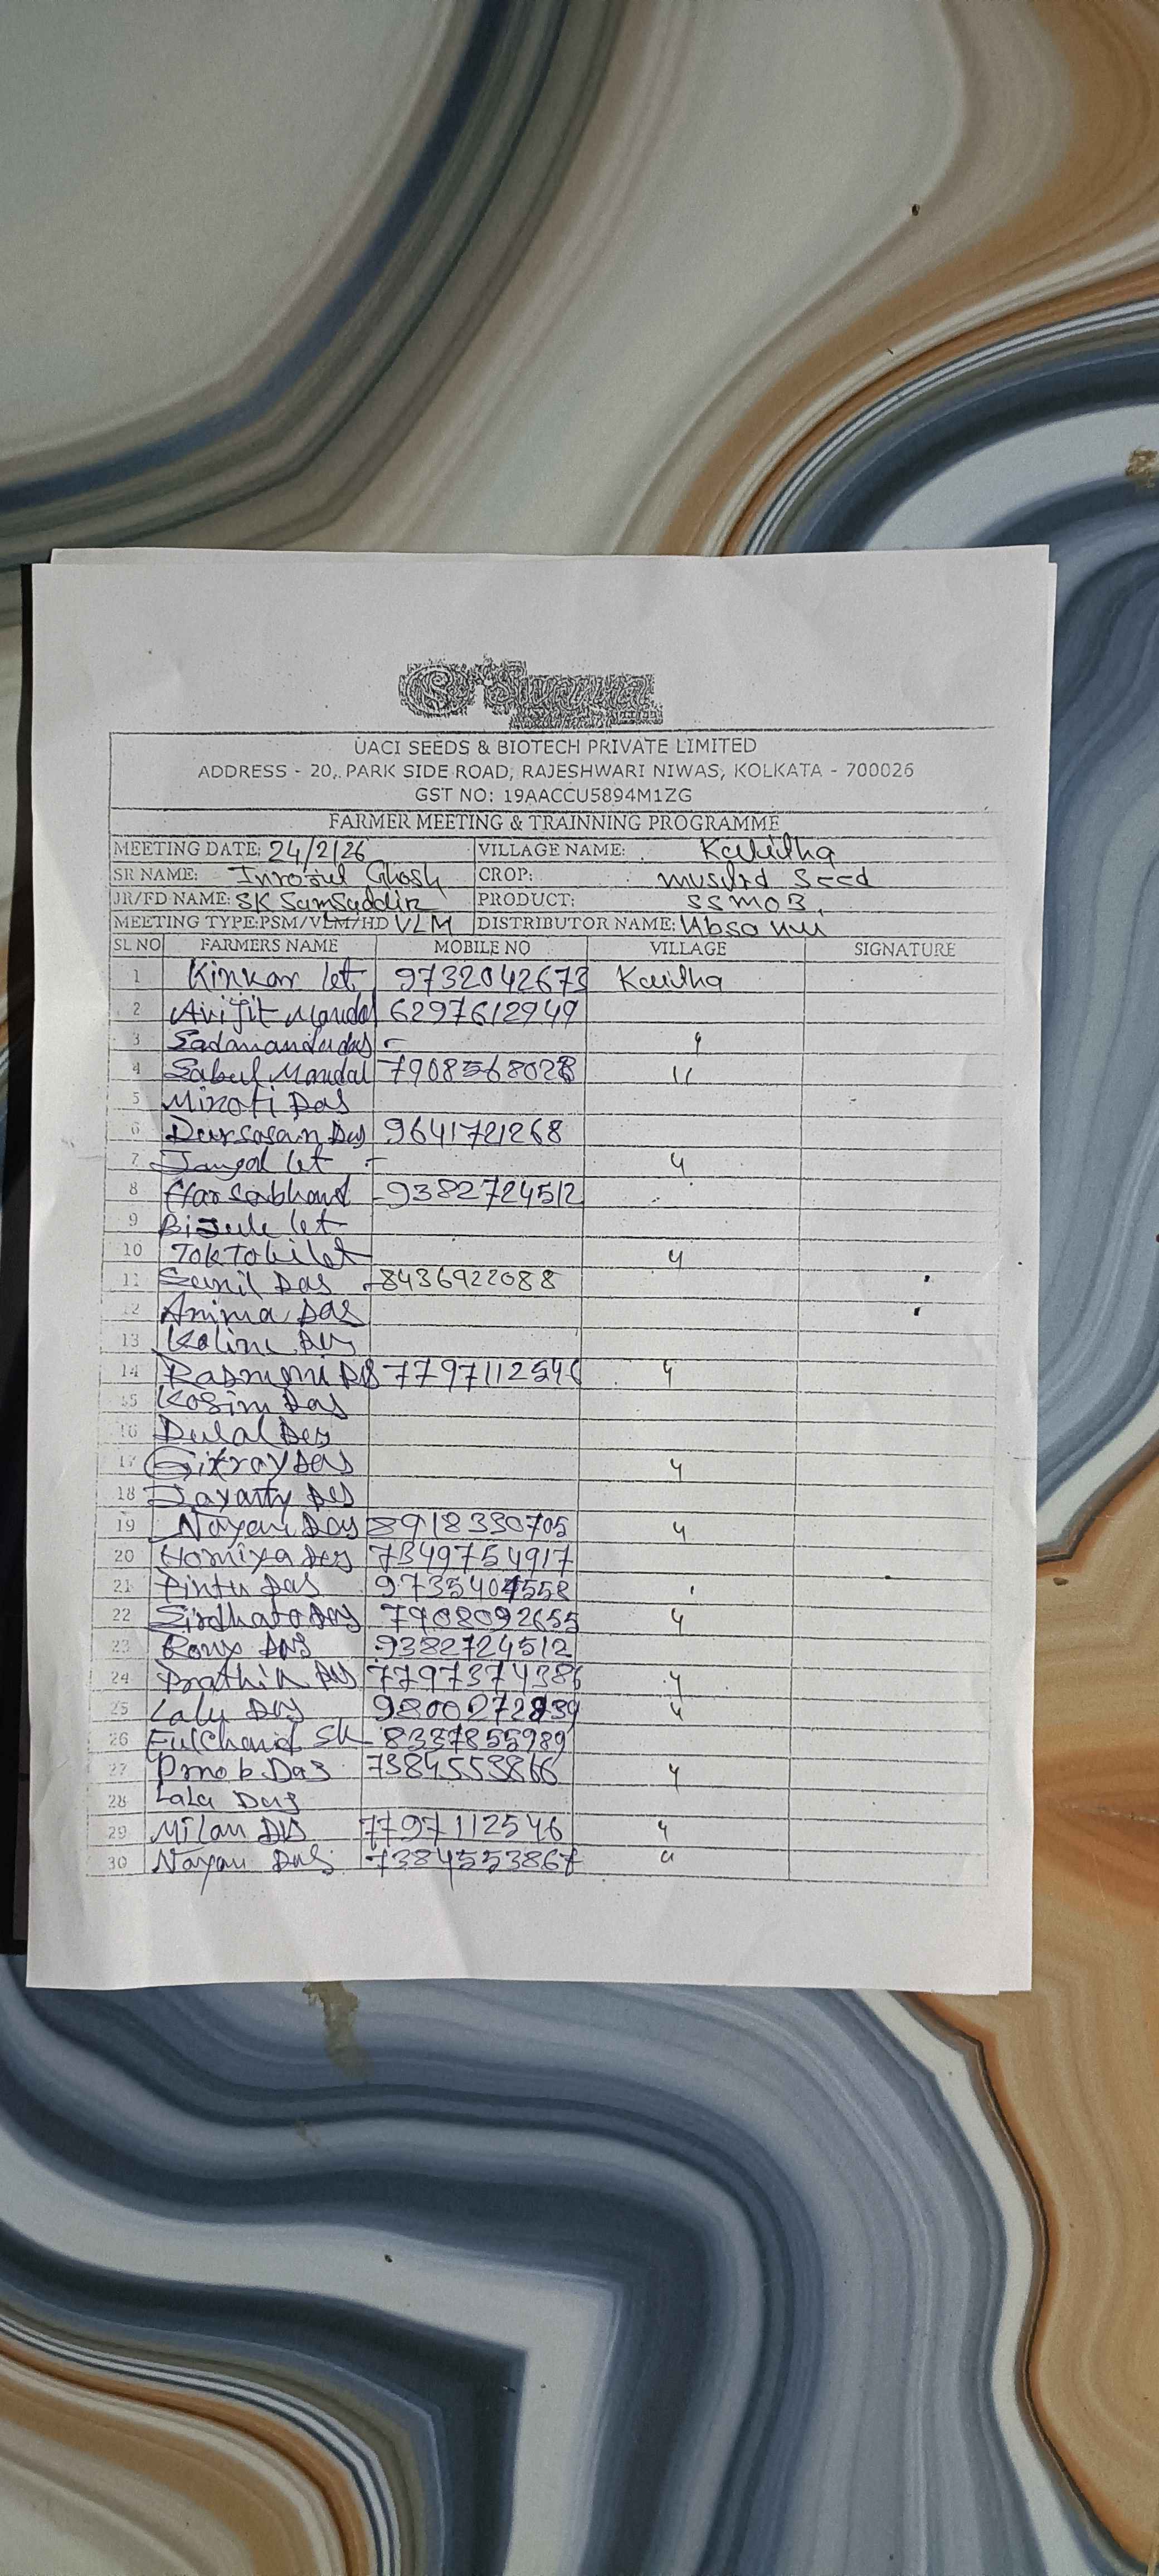 UACI SEEDS & BIOTECH PRIVATE LIMITED
ADDRESS - 20, PARK SIDE ROAD, RAJESHWARI NIWAS, KOLKATA - 700026
GST NO: 19AACCU5894M1ZG
FARMER MEETING & TRAINNING PROGRAMME
MEETING DATE: 24/2/26 VILLAGE NAME:
SR NAME: Ghosh CROP: Seed
JR/FD NAME: SK Samsuddin PRODUCT: SSMOB
MEETING TYPE:PSM/VLM/HD VLM DISTRIBUTOR NAME:
SL NO FARMERS NAME MOBILE NO VILLAGE SIGNATURE
1 Kinkar let 9732042673
2 Avijit Mandal 6297612949
3 Sadanandadas - "
4 Sabul Mandal 7908568028 "
5 Minoti Das
6 Das 9641721268
7 Jangal let - "
8 9382724512
9 let
10 "
11 Sunil Das - 8436922088
12 Anima Das
13 Das
14 7797112546 "
15 Kosim Das
16 Dulal Das
17 Das "
18 Das
19 Nayan Das 8918330705 "
20 Das 7349754917
21 Pintu Das 9735404558
22 7908092655 "
23 Das 9382724512
24 Das 7797374386 "
25 Lalu Das "
26 Fulchand SK 8337855989
27 Das 7384553866 "
28 Lala Das
29 Milan Das 7797112546 "
30 Nayan Das 7384553867 "